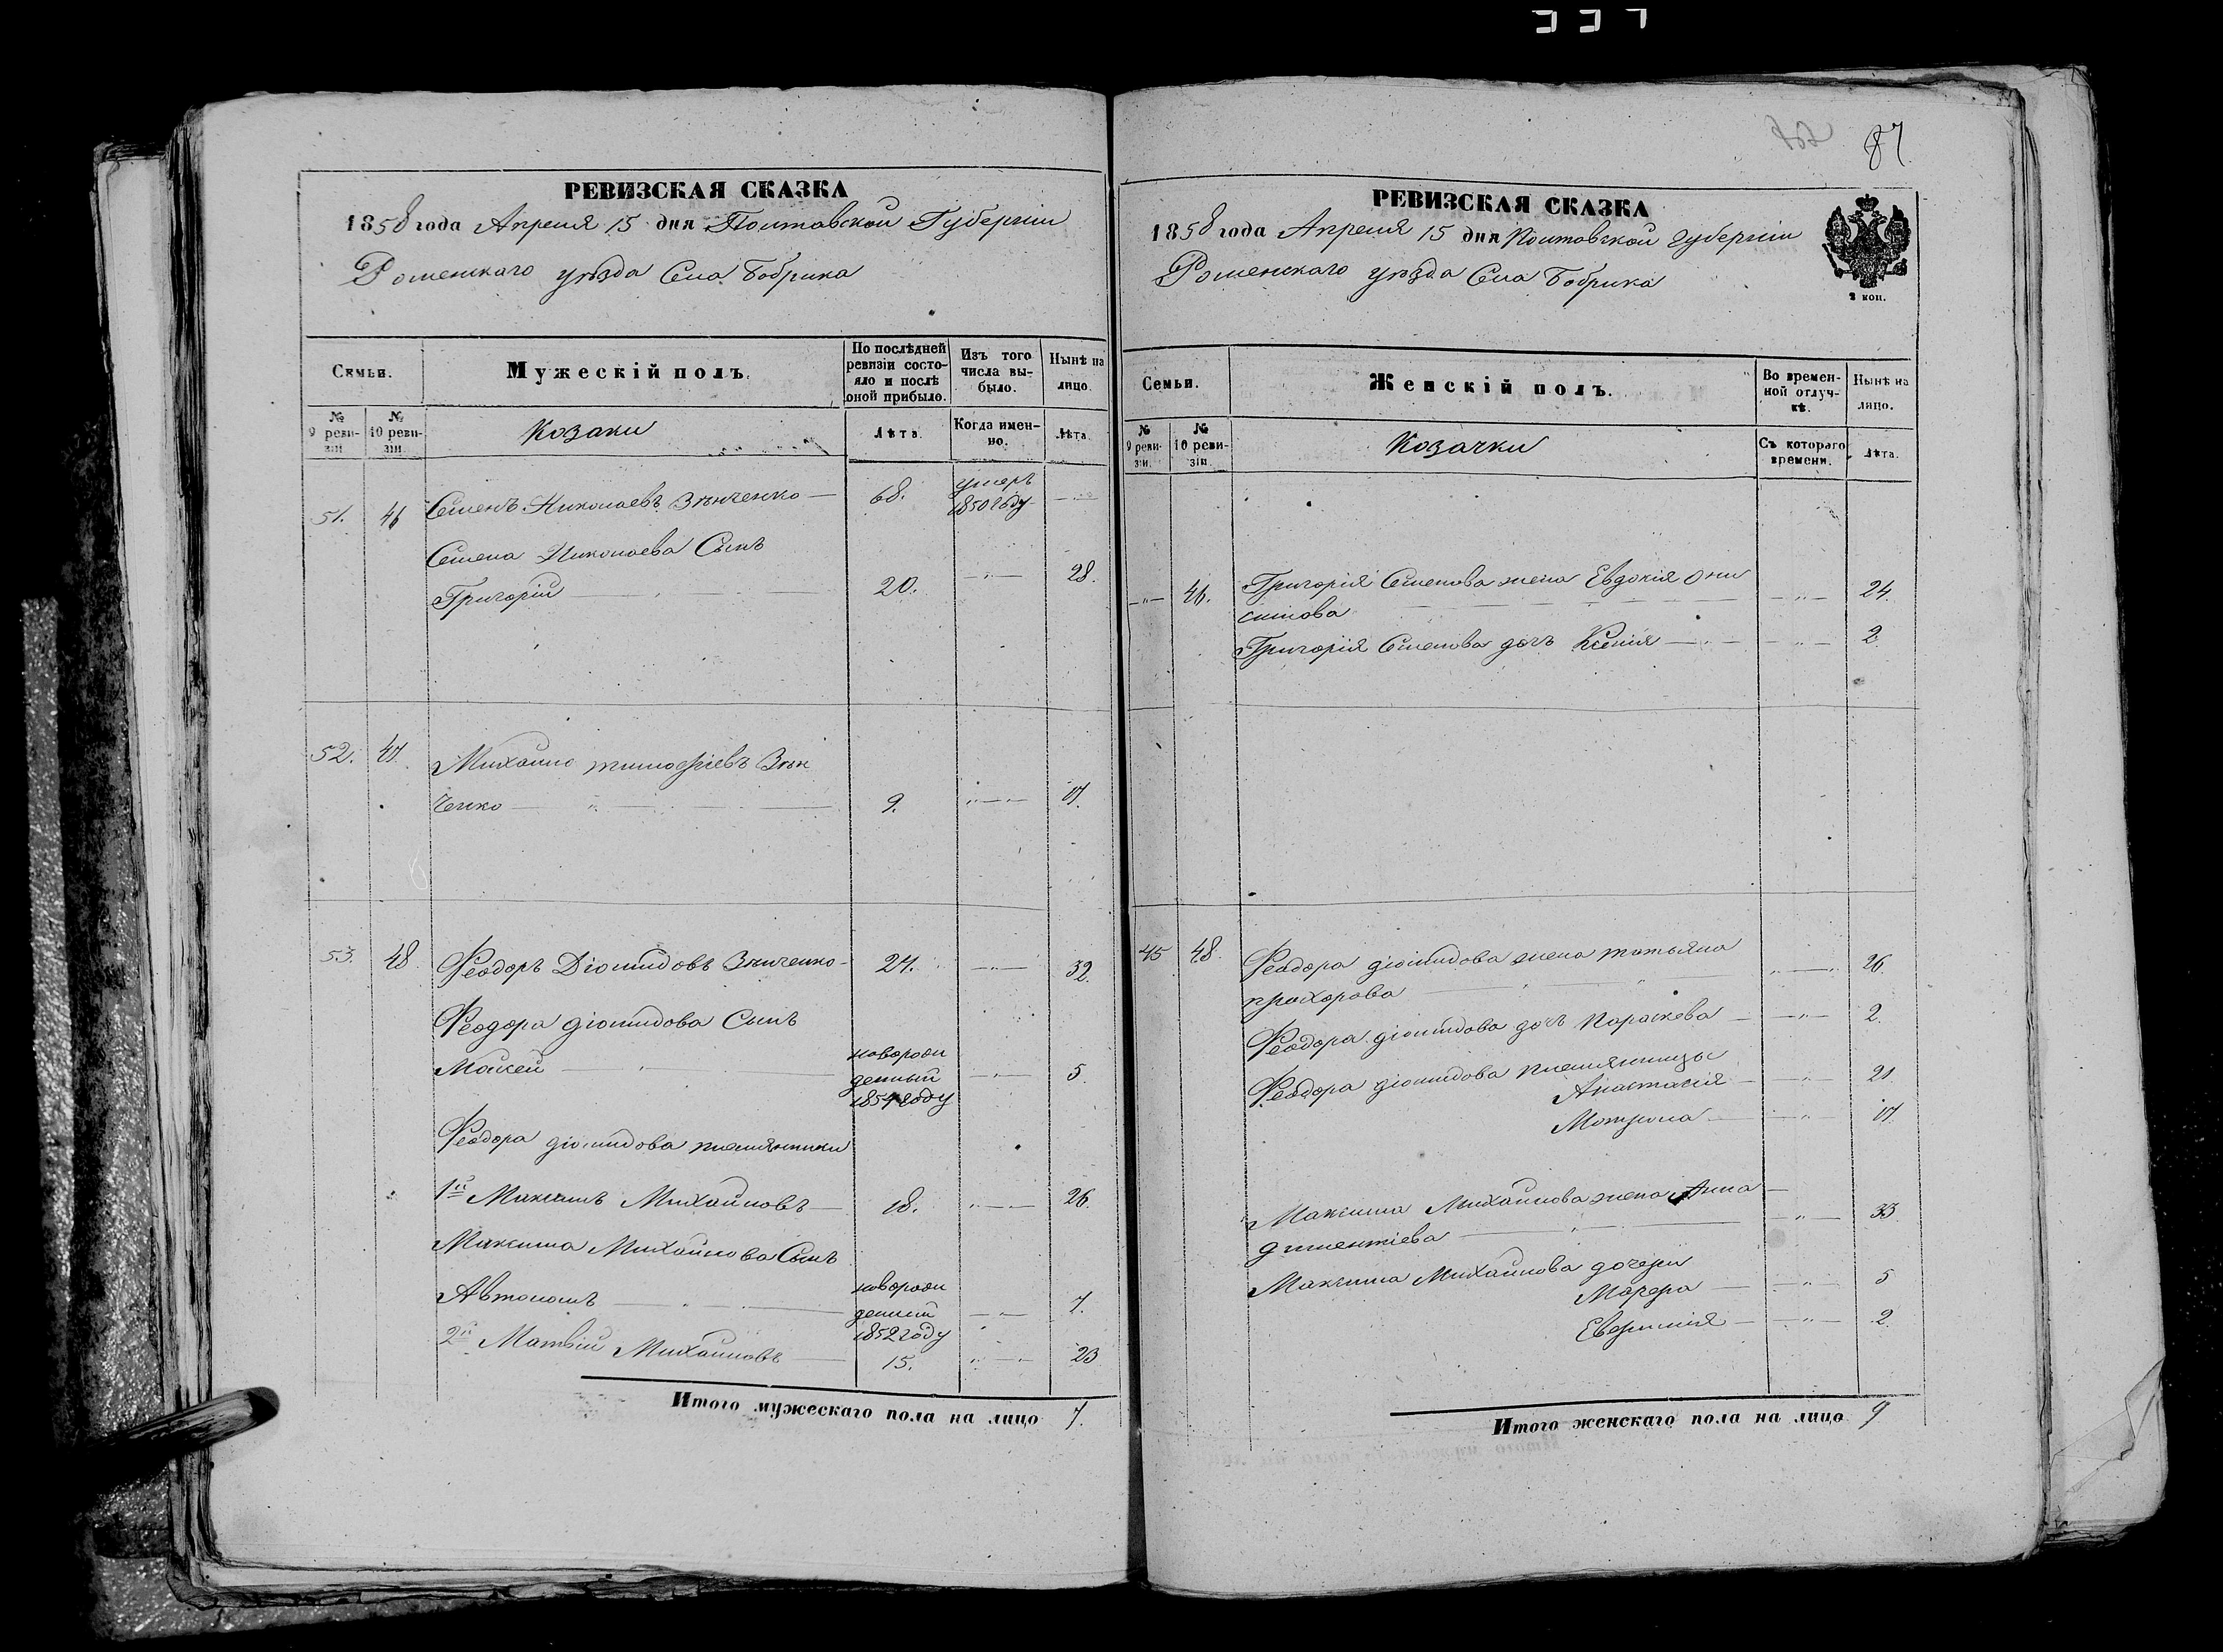 87
РЕВИЗСКАЯ СКАЗКА
1858 года Апреля 15 дня Полтавской Губернiи
Роменскаго уѣзда Села Бобрика
Семьи.
Мужескiй полъ.
По послѣдней
ревизiи состо-
яло и послѣ
оной прибыло.
Изъ того
числа вы-
было.
Нынѣ на
лицо.
№
9 реви-
зiи
№
10 реви-
зiи.
Козаки
Лѣта.
Когда имен-
но.
Лѣта
51. 46 Семенъ Николаевъ Зѣнченко 68. умеръ
1850 году
Семена Николаева Сынъ
Григорiй 20. 28.
52. 47 Михайло тимофѣевъ Зѣн
ченко 9. 17.
53. 48 Феодоръ Дiомидовъ Зѣнченко 24. 32.
Феодора дiомидова Сынъ
Мокей новорож
денный
1854 году 5.
Феодора дiомидова племянники
1й Максимъ Михайловъ 18. 26.
Максима Михайлова Сынъ
Автономъ новорож
денный
1852 году 7.
2й Матвiй Михайловъ 15. 23
Итого мужескаго пола на лицо 7.
РЕВИЗСКАЯ СКАЗКА
1858 года Апреля 15 дня Полтавской Губернiи
Роменскаго уѣзда Села Бобрика
2 коп.
Семьи.
Женскiй полъ.
Во времен-
ной отлуч-
кѣ.
Нынѣ на
лицо.
№
9 реви-
зiи.
№
10 реви-
зiи.
Козачки
Съ котораго
времени.
Лѣта.
46. Григорiя Семенова жена Евдокiя Они
симова 24.
Григорiя Семенова дочъ Ксенiя 2.
45 48. Феодора дiомидова жена татьяна
прохорова 26.
Феодора дiомидова дочъ Параскева 2.
Феодора дiомидова племянницы
Анастасiя 21.
Мотрона 17.
Максима Михайлова жена Анна
дементiева 33.
Максима Михайлова дочери
Марфа 5
Евфимiя 2.
Итого женскаго пола на лицо 9